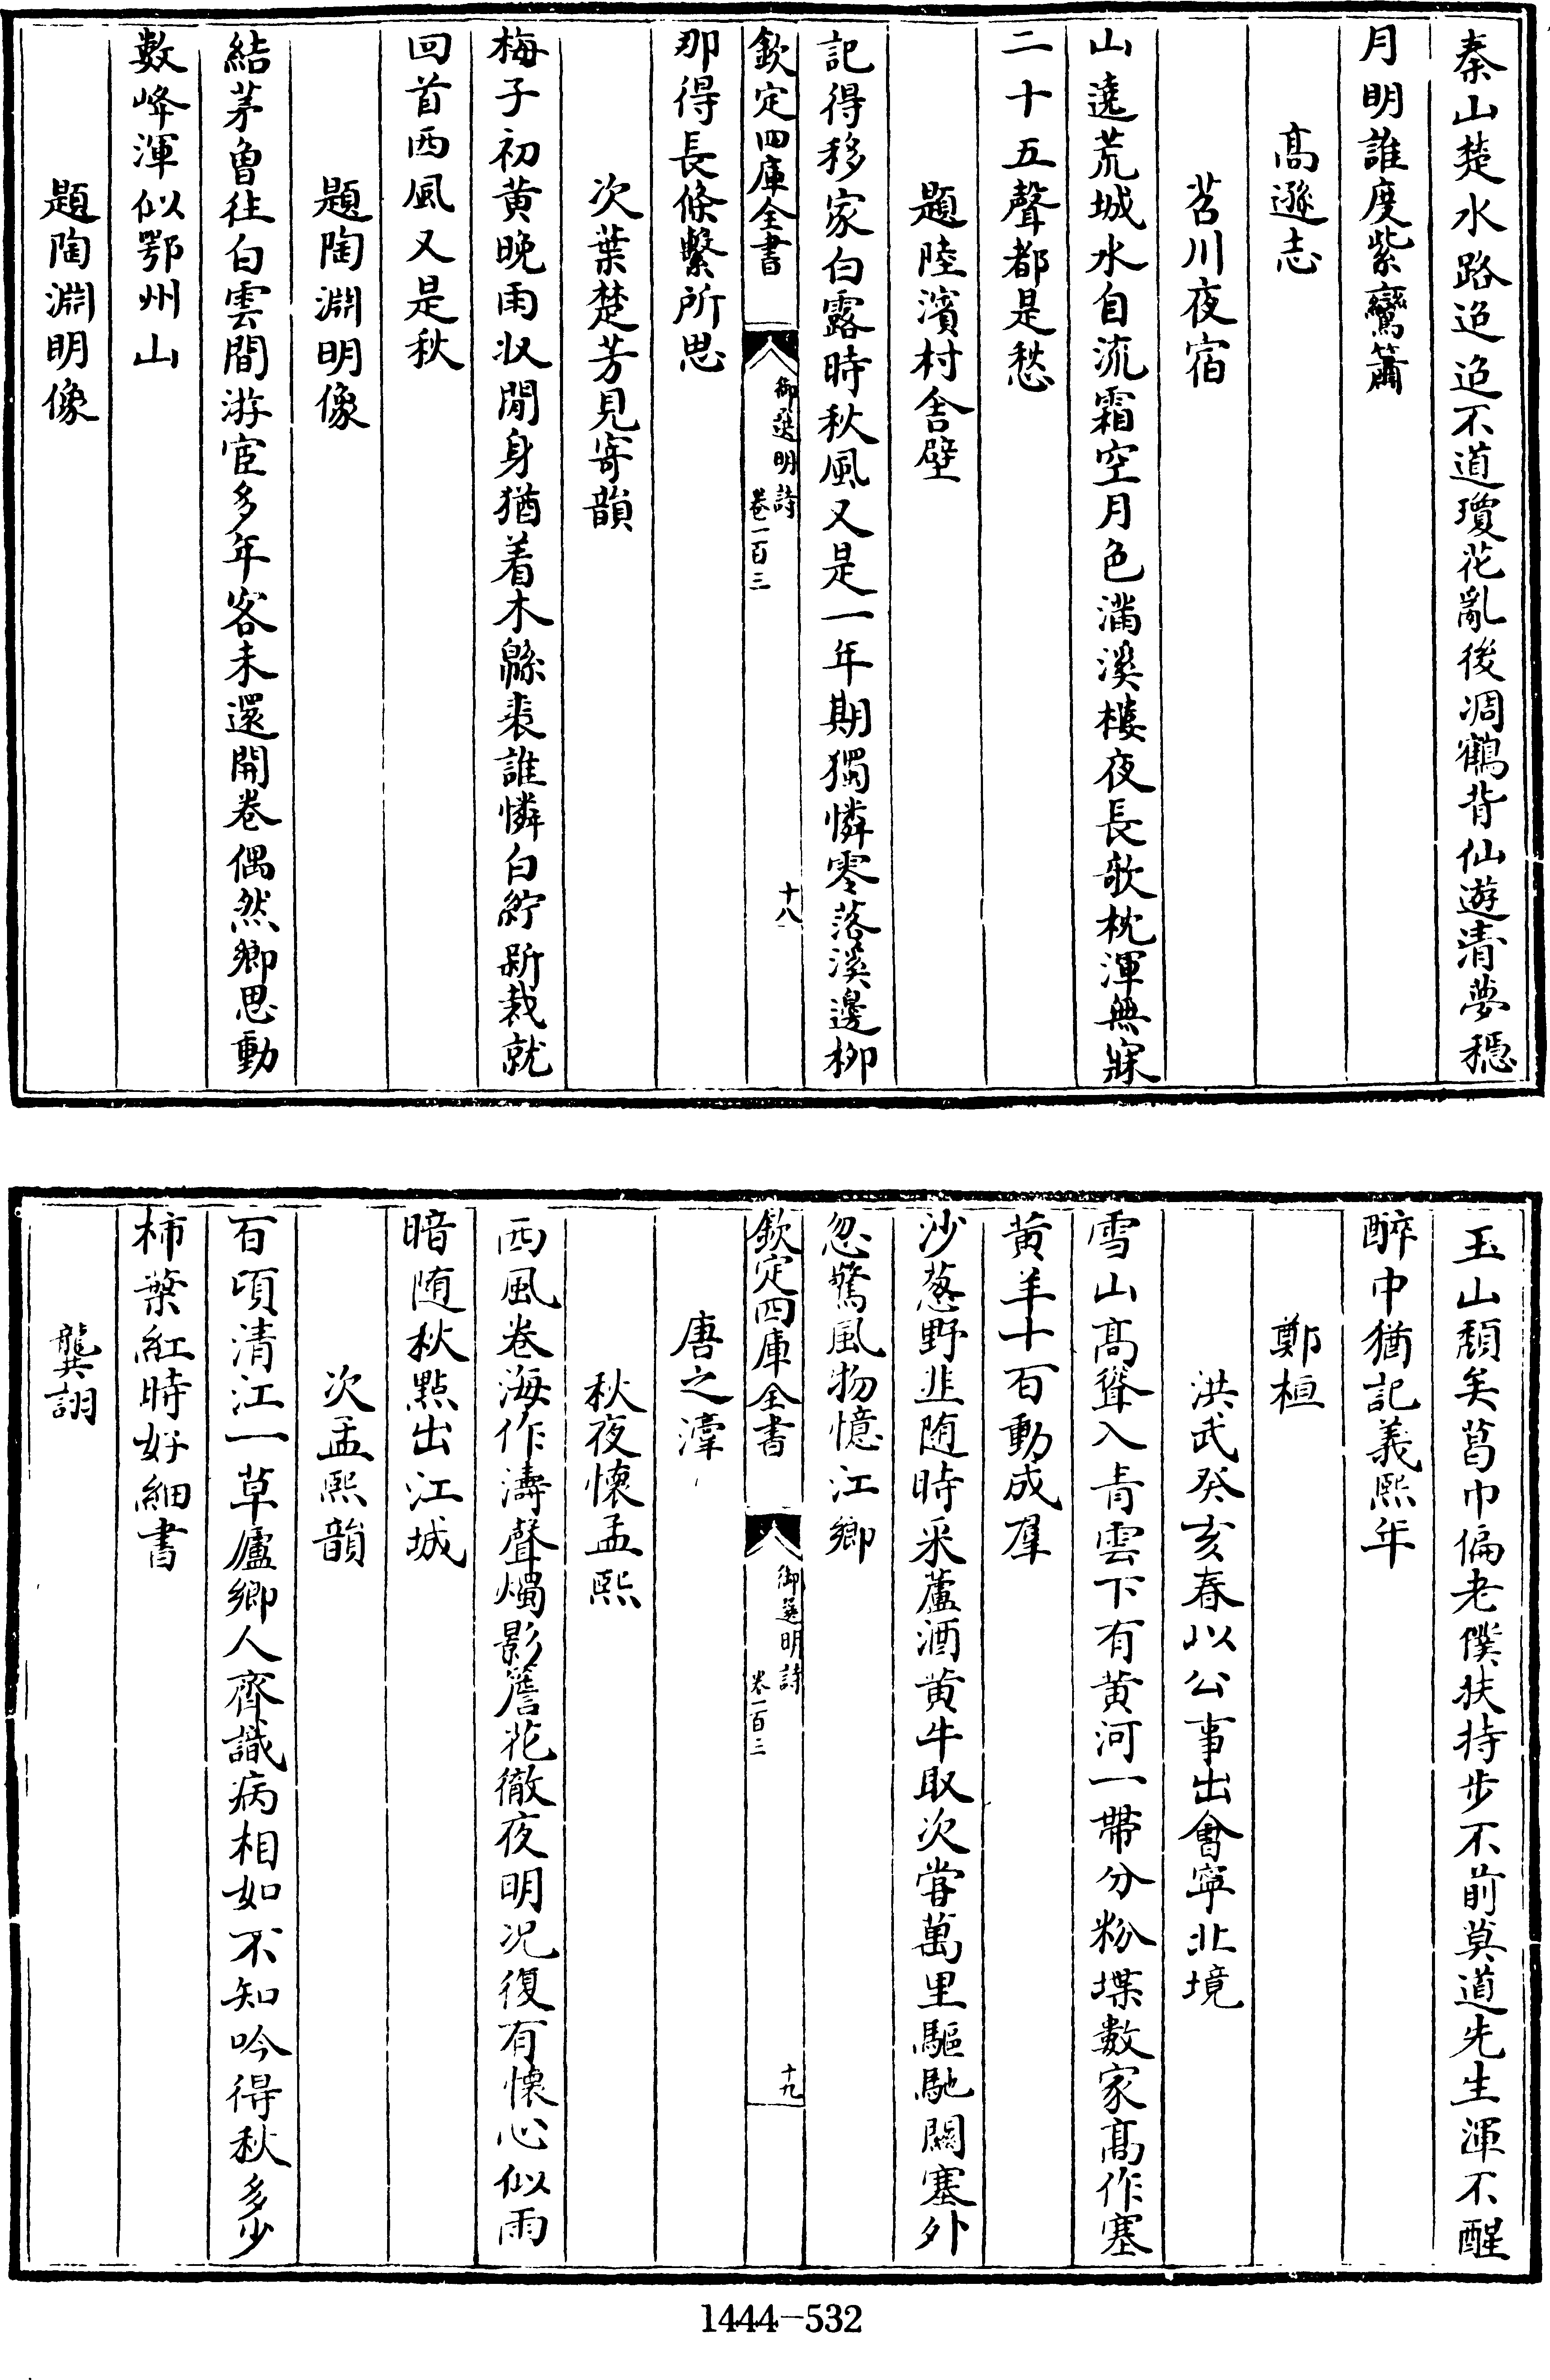 秦山楚水路迢迢不道瓊花亂後凋鶴背仙遊清夢穩
月明誰度紫鸞簫
高遜志
苕川夜宿
山遶荒城水自流霜空月色滿溪樓夜長欹枕渾無寐
二十五聲都是愁
題陸濱村舍壁
記得移家白露時秋風又是一年期獨憐零落溪邊柳
欽定四庫全書
御選明詩
卷一百三
十八
那得長條繫所思
次葉楚芳見寄韻
梅子初黄晚雨收閒身猶着木緜裘誰憐白紵新裁就
回首西風又是秋
題陶淵明像
結茅曾住白雲間游宦多年客未還開卷偶然鄉思動
數峰渾似鄂州山
題陶淵明像
玉山頹矣葛巾偏老僕扶持步不前莫道先生渾不醒
醉中猶記義熙年
鄭桓
洪武癸亥春以公事出會寧北境
雪山髙聳入青雲下有黄河一帶分粉堞數家髙作塞
黄羊十百動成羣
沙葱野韭随時采蘆酒黄牛取次嘗萬里驅馳闗塞外
忽驚風物憶江鄉
欽定四庫全書
御選明詩
卷一百三
十九
唐之淳
秋夜懷孟熙
西風卷海作濤聲燭影簷花徹夜明况復有懷心似雨
暗随秋點出江城
次孟熙韻
百頃清江一草廬鄉人齊識病相如不知吟得秋多少
柿葉紅時好細書
龔詡
1444-532